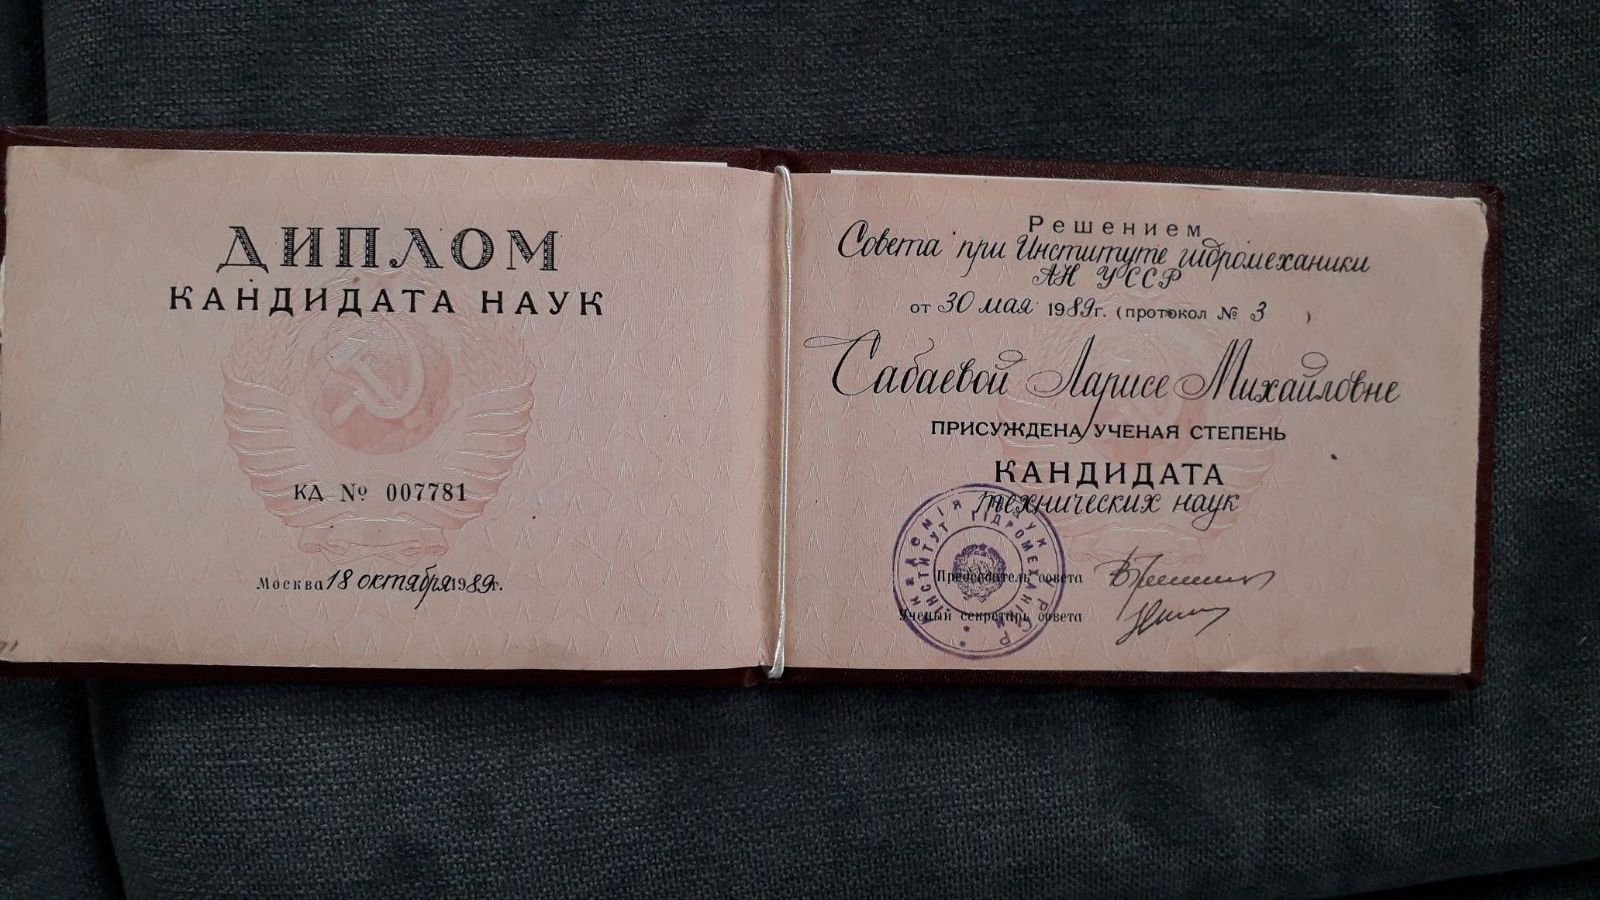 ДИПЛОМ
КАНДИДАТА НАУК
КД № 007781
Москва 18 октября 1989г.
Решением
Совета при Институте гидромеханики
АН УССР
от 30 мая 1989г. (протокол № 3 )
Сабаевой Ларисе Михайловне
ПРИСУЖДЕНА УЧЕНАЯ СТЕПЕНЬ
КАНДИДАТА
технических наук
Председатель совета
Ученый секретарь совета
ІНСТИТУТ ГІДРОМЕХАНІКИ